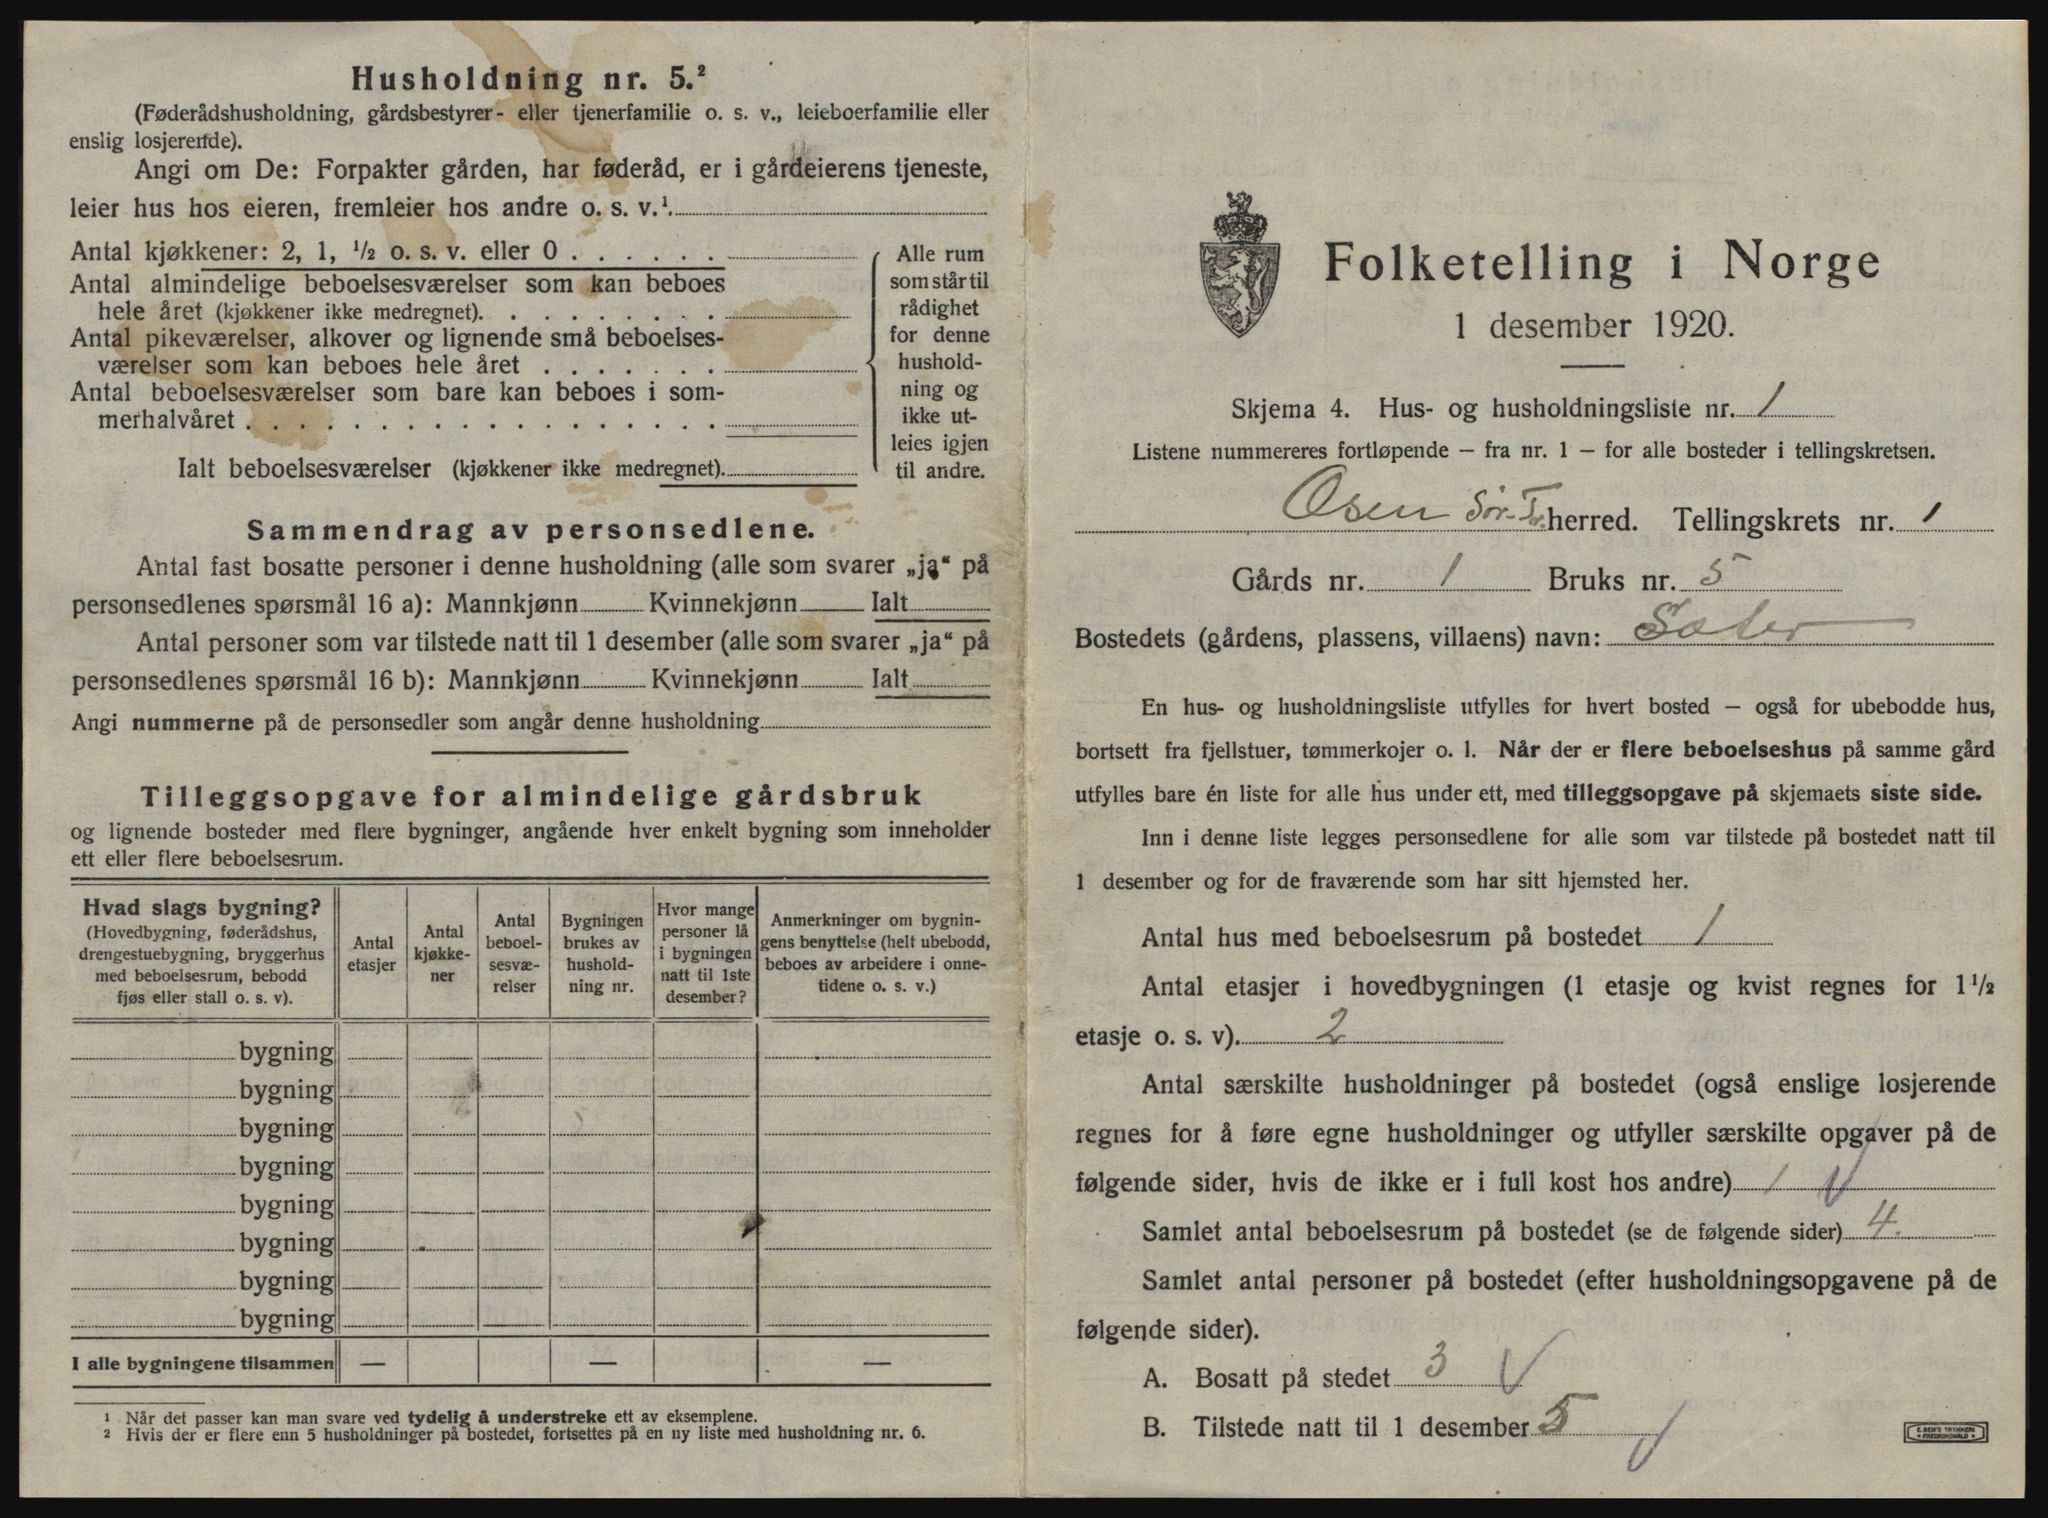 Husholdning nr. 5.²
(Føderådshusholdning, gårdsbestyrer- eller tjenerfamilie o. s. v., leieboerfamilie eller
enslig losjerende).
Angi om De: Forpakter gården, har føderåd, er i gårdeierens tjeneste,
leier hus hos eieren, fremleier hos andre o. s. v.¹.
Antal kjøkkener: 2, 1, ½ o. s. v. eller 0 . . . . . .
Antal almindelige beboelsesværelser som kan beboes
hele året (kjøkkener ikke medregnet). . . . . . . . .
Antal pikeværelser, alkover og lignende små beboelses-
værelser som kan beboes hele året . . . . . . .
Antal beboelsesværelser som bare kan beboes i som-
merhalvåret . . . . . . . . . . . . . . . . . .
Ialt beboelsesværelser (kjøkkener ikke medregnet).
Alle rum
som står til
rådighet
for denne
hushold-
ning og
ikke ut-
leies igjen
til andre.
Sammendrag av personsedlene.
Antal fast bosatte personer i denne husholdning (alle som svarer „ja“ på
personsedlenes spørsmål 16 a): Mannkjønn Kvinnekjønn Ialt
Antal personer som var tilstede natt til 1 desember (alle som svarer „ja“ på
personsedlenes spørsmål 16 b): Mannkjønn Kvinnekjønn Ialt
Angi nummerne på de personsedler som angår denne husholdning
Tilleggsopgave for almindelige gårdsbruk
og lignende bosteder med flere bygninger, angående hver enkelt bygning som inneholder
ett eller flere beboelsesrum.
Hvad slags bygning?
(Hovedbygning, føderådshus,
drengestuebygning, bryggerhus
med beboelsesrum, bebodd
fjøs eller stall o. s. v).
Antal
etasjer
Antal
kjøkke-
ner
Antal
beboel-
sesvæ-
relser
Bygningen
brukes av
hushold-
ning nr.
Hvor mange
personer lå
i bygningen
natt til 1ste
desember?
Anmerkninger om bygnin-
gens benyttelse (helt ubebodd,
beboes av arbeidere i onne-
tidene o. s. v.)
bygning
bygning
bygning
bygning
bygning
bygning
bygning
bygning
I alle bygningene tilsammen — — —
¹ Når det passer kan man svare ved tydelig å understreke ett av eksemplene.
² Hvis der er flere enn 5 husholdninger på bostedet, fortsettes på en ny liste med husholdning nr. 6.
Folketelling i Norge
1 desember 1920.
Skjema 4. Hus- og husholdningsliste nr. 1
Listene nummereres fortløpende – fra nr. 1 – for alle bosteder i tellingskretsen.
Osen Sør-Tr. herred. Tellingskrets nr. 1
Gårds nr. 1 Bruks nr. 5
Bostedets (gårdens, plassens, villaens) navn: Sæter
En hus- og husholdningsliste utfylles for hvert bosted – også for ubebodde hus,
bortsett fra fjellstuer, tømmerkojer o. l. Når der er flere beboelseshus på samme gård
utfylles bare én liste for alle hus under ett, med tilleggsopgave på skjemaets siste side.
Inn i denne liste legges personsedlene for alle som var tilstede på bostedet natt til
1 desember og for de fraværende som har sitt hjemsted her.
Antal hus med beboelsesrum på bostedet 1
Antal etasjer i hovedbygningen (1 etasje og kvist regnes for 1½
etasje o. s. v). 2
Antal særskilte husholdninger på bostedet (også enslige losjerende
regnes for å føre egne husholdninger og utfyller særskilte opgaver på de
følgende sider, hvis de ikke er i full kost hos andre) 1
Samlet antal beboelsesrum på bostedet (se de følgende sider) 4.
Samlet antal personer på bostedet (efter husholdningsopgavene på de
følgende sider).
A. Bosatt på stedet 3
B. Tilstede natt til 1 desember 5
E. SEM'S TRYKKERI
FREDRIKSHALD